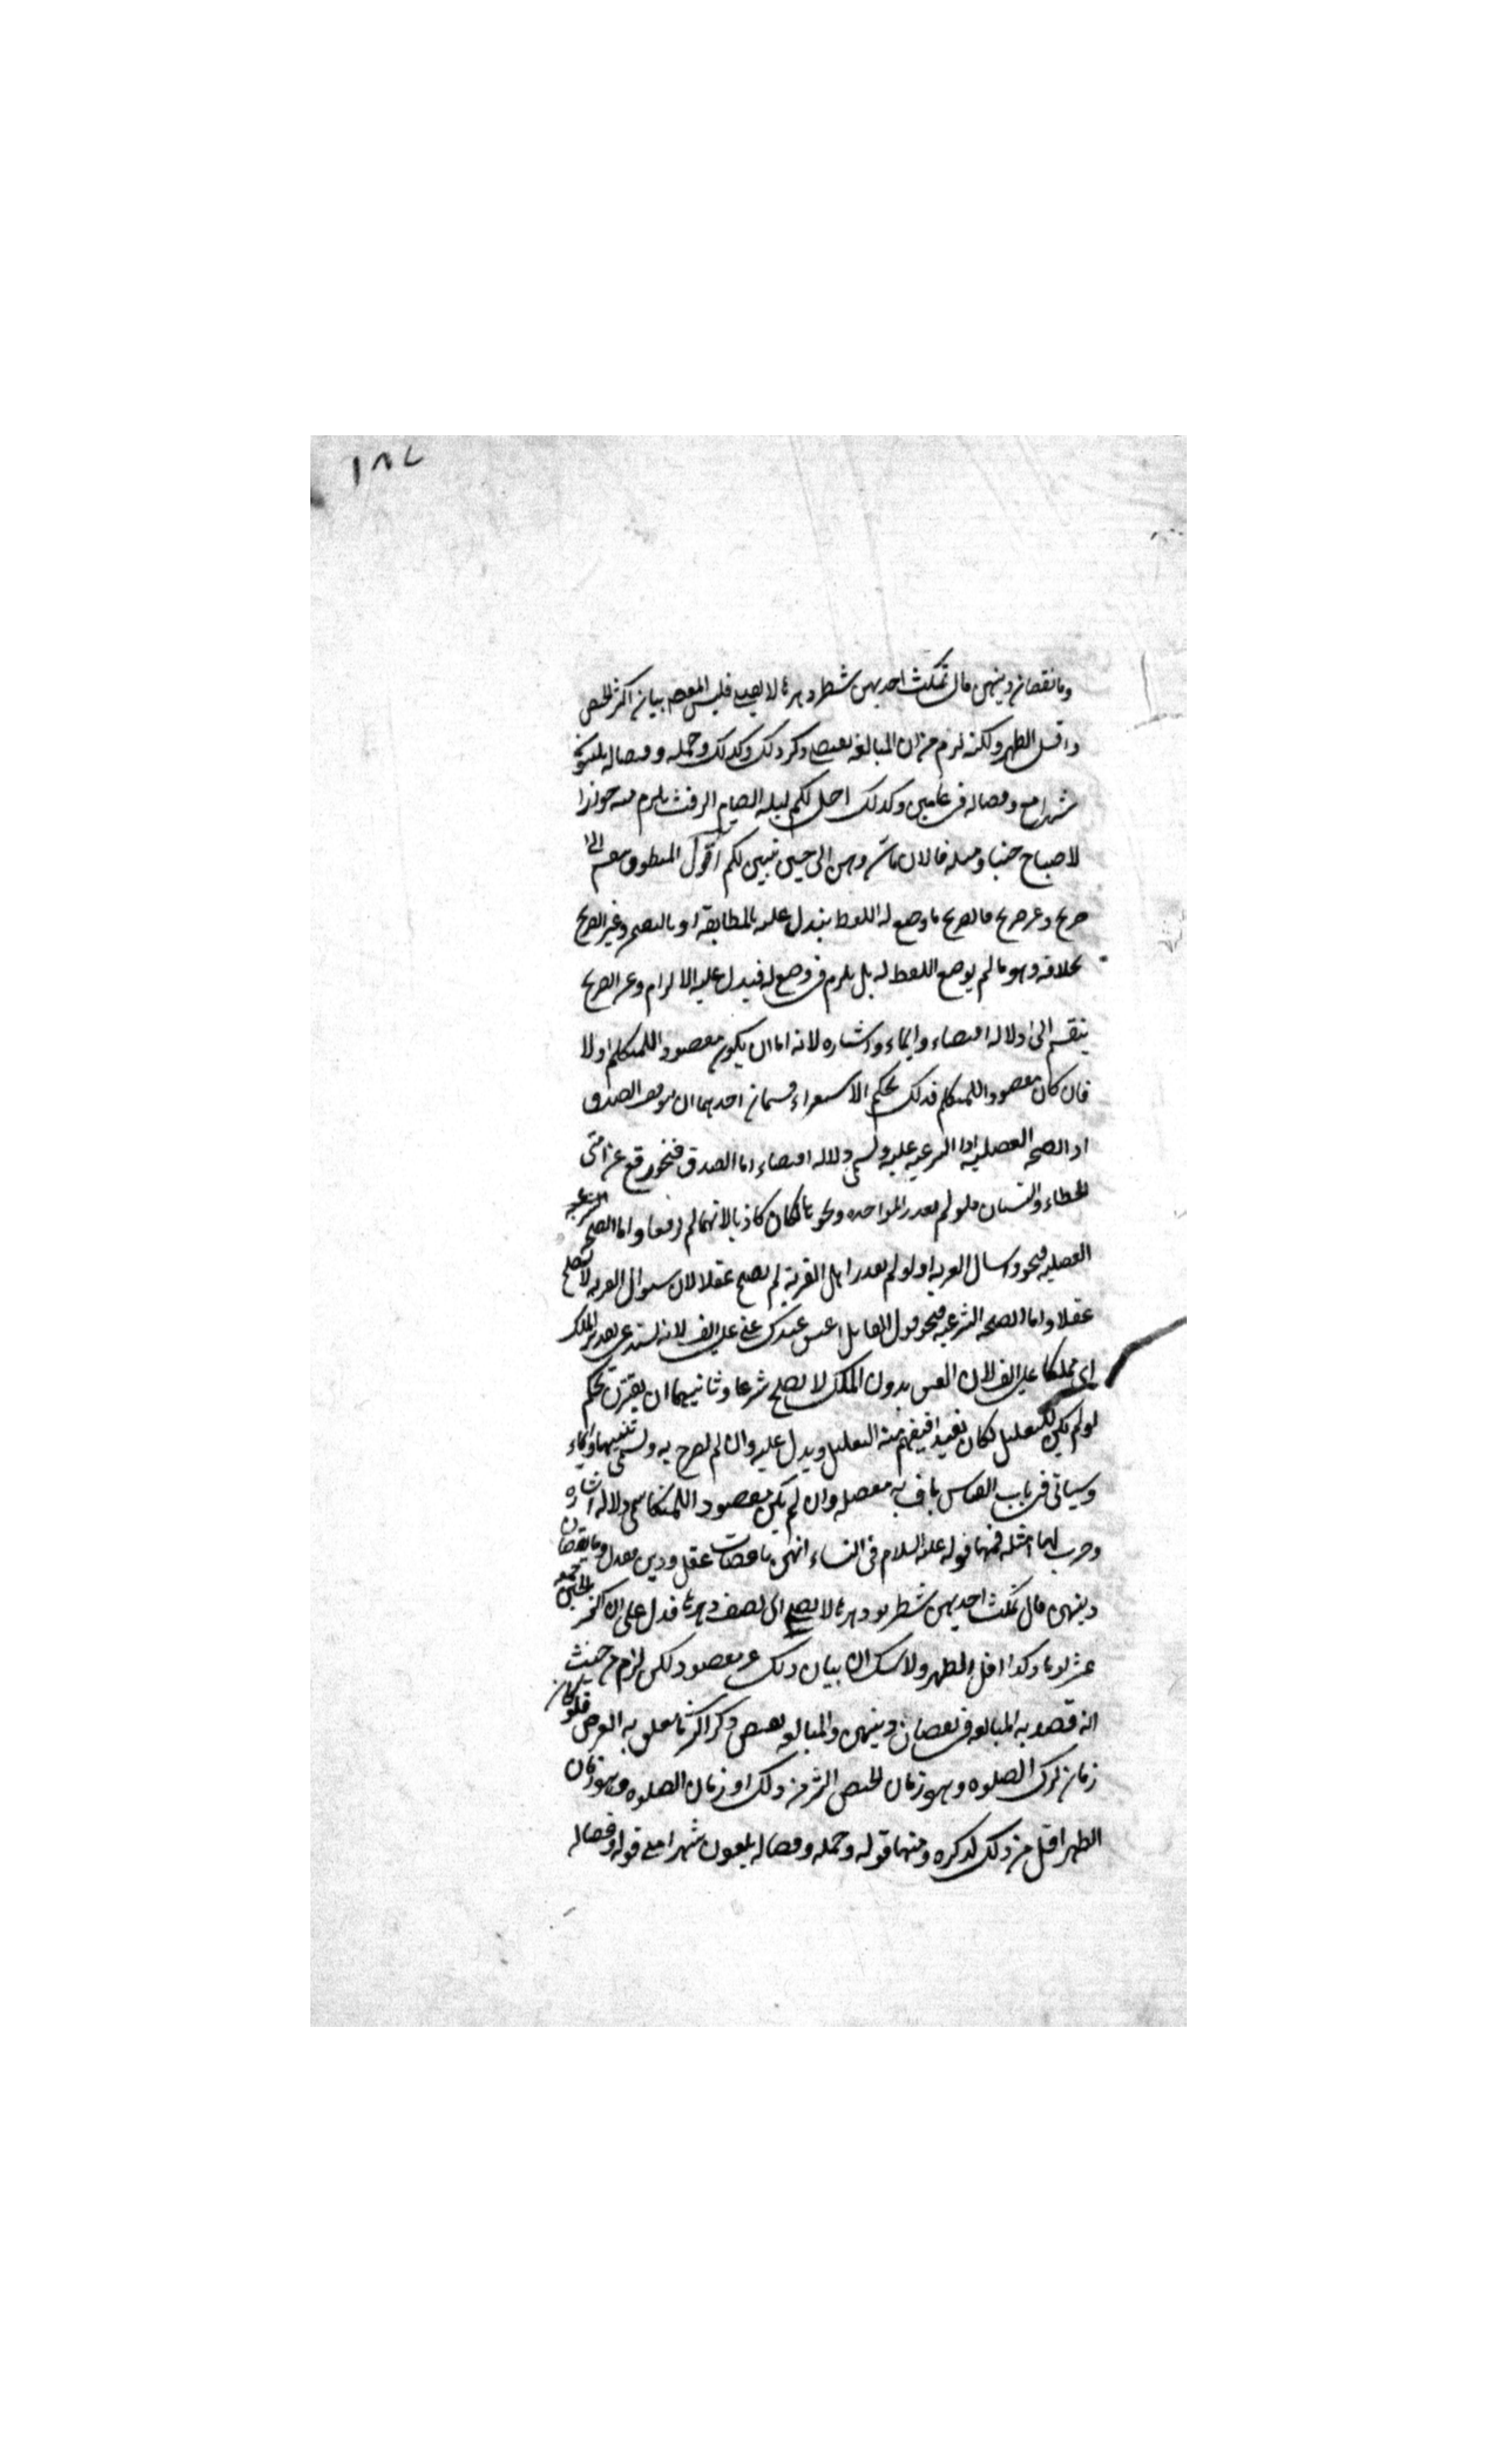 ١٨٧
وما نقصان دينهن قال تمكث احديهن شطر دهرها لا تصلي فليس المقصود بيان اكثر الحيض
واقل الطهر ولكنه لزم من ان المبالغة تقتضي ذكر ذلك وكذلك وحمله وفصاله ثلثون
شهرا مع وفصاله في عامين وكذلك احل لكم ليلة الصيام الرفث يلزم منه جواز
الاصباح جنبا ومثله فالان باشروهن الى حتى يتبين لكم اقول المنطوق ينقسم الى
صريح وغير صريح فالصريح ما وضع له اللفظ فيدل عليه بالمطابقة او بالتضمن وغير الصريح
بخلافه وهو ما لم يوضع اللفظ له بل يلزم في وضع له فيدل عليه الالزام وغير الصريح
ينقسم الى دلالة اقتضاء وايماء واشارة لانه اما ان يكون مقصود اللمتكلم اولا
فان كان مقصود اللمتكلم فذلك بحكم الاستقراء قسمان احدهما ان يتوقف الصدق
او الصحة العقلية او الشرعية عليه ويسمى دلالة اقتضاء اما الصدق فنحو رفع عن امتى
الخطاء والنسيان فلو لم يقدر المؤاخذة ونحوها لكان كاذبا لانهما لم يرفعا واما الصحة
العقلية فنحو واسال القرية اذ لو لم يقدر اهل القرية لم يصح عقلا لان سؤال القرية لا يصح
عقلا واما الصحة الشرعية فنحو قول القائل اعتق عبدك عني على الف لانه يستدعى تقدير الملك
اى مملكا على الف لان العتق بدون الملك لا يصح شرعا وثانيهما ان يقترن بحكم
لو لم يكن للتعليل لكان بعيدا فيفهم منه التعليل ويدل عليه وان لم يصرح به ويسمى تنبيها وايماء
وسياتى في باب القياس باقسامه مفصلة وان لم يكن مقصود اللمتكلم سمى دلالة اشارة
وضرب لها امثلة فمنها قوله عليه السلام في النساء انهن ناقصات عقل ودين فقيل وما نقصان
دينهن قال تمكث احديهن شطر دهرها لا تصلي اى نصف دهرها فدل على ان اكثر الحيض خمسة
عشر يوما وكذا اقل الطهر ولا شك ان بيان ذلك غير مقصود لكن لزم من حيث
انه قصد به المبالغة في نقصان دينهن والمبالغة تقتضي ذكر اكثر ما يتعلق به الغرض فلو كان
زمان ترك الصلوة وهو زمان الحيض اكثر من ذلك او زمان الصلوة وهو زمان
الطهر اقل من ذلك لذكره ومنها قوله وحمله وفصاله ثلثون شهرا مع قوله وفصاله